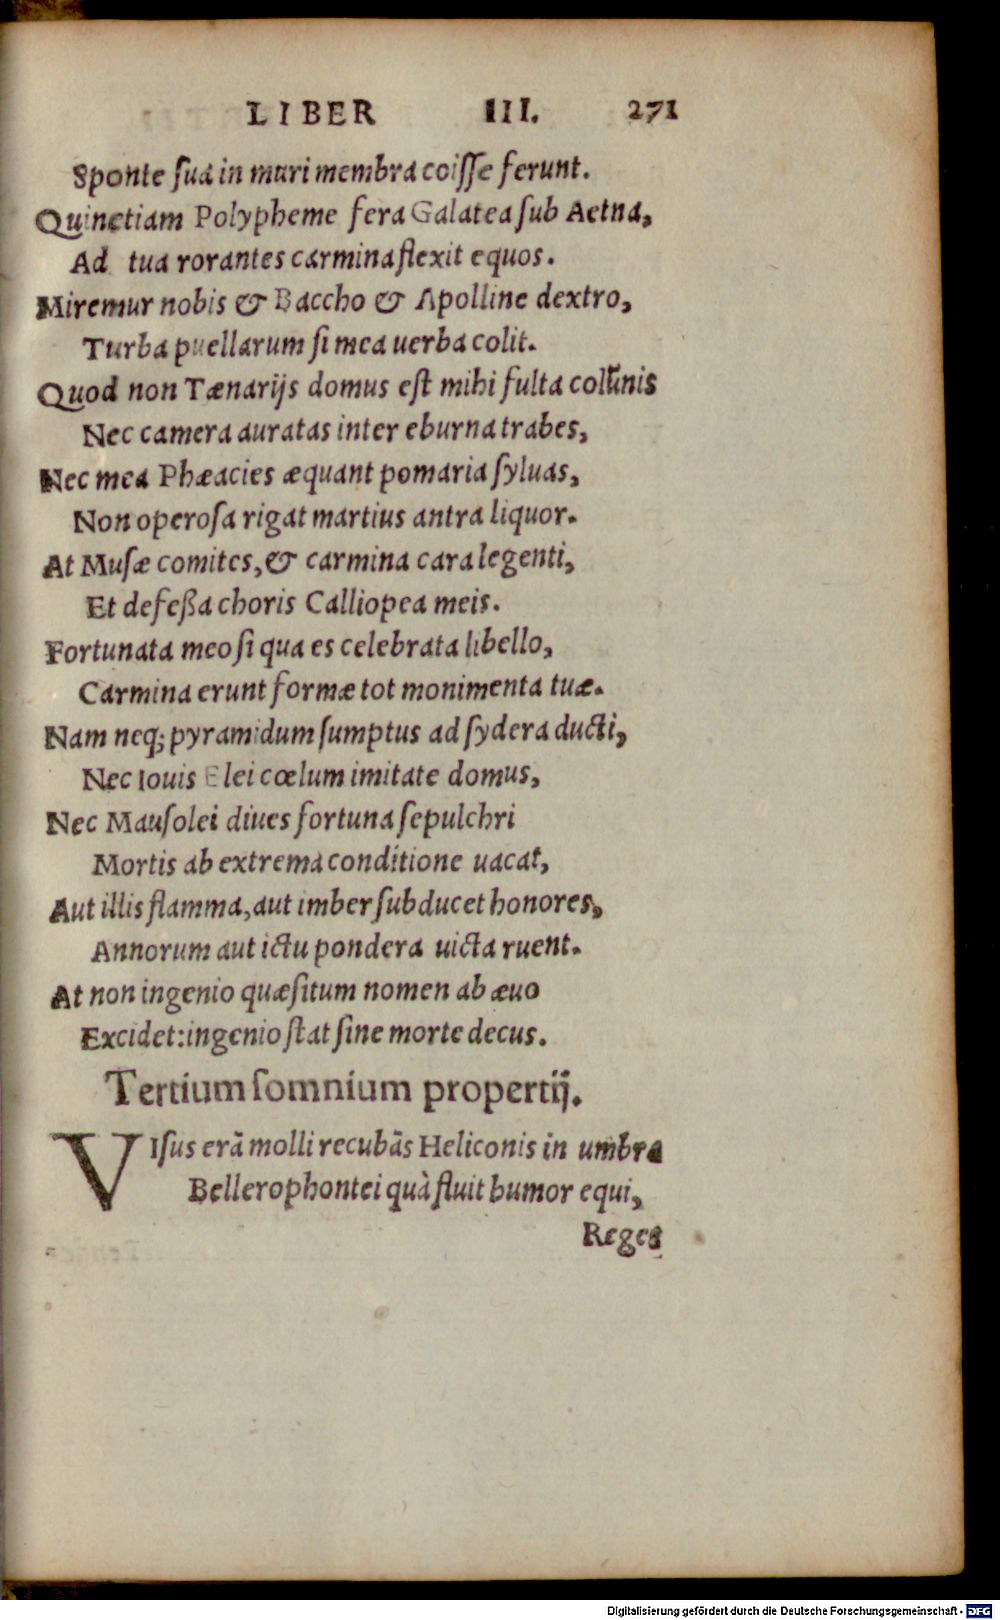 LIBER III. 271
Sponte ſua in muri membra coiſſe ferunt.
Quinetiam Polypheme fera Galatea ſub Aetna,
Ad tua rorantes carmina flexit equos.
Miremur nobis & Baccho & Apolline dextro,
Turba puellarum ſi mea uerba colit.
Quod non Tænarijs domus eſt mihi fulta colūnis
Nec camera auratas inter eburna trabes,
Nec mea Phæacies æquant pomaria ſyluas,
Non operoſa rigat martius antra liquor.
At Muſæ comites, & carmina cara legenti,
Et defeßa choris Calliopea meis.
Fortunata meo ſi qua es celebrata libello,
Carmina erunt formæ tot monimenta tuæ.
Nam neq; pyramidum ſumptus ad ſydera ducti,
Nec Iouis Elei cœlum imitate domus,
Nec Mauſolei diues fortuna ſepulchri
Mortis ab extrema conditione uacat,
Aut illis flamma, aut imber ſubducet honores,
Annorum aut ictu pondera uicta ruent.
At non ingenio quæſitum nomen ab æuo
Excidet: ingenio ſtat ſine morte decus.
Tertium ſomnium propertij.
VIſus erā molli recubās Heliconis in umbra
Bellerophontei quà fluit humor equi,
Reges
Digitalisierung gefördert durch die Deutsche Forschungsgemeinschaft - DFG